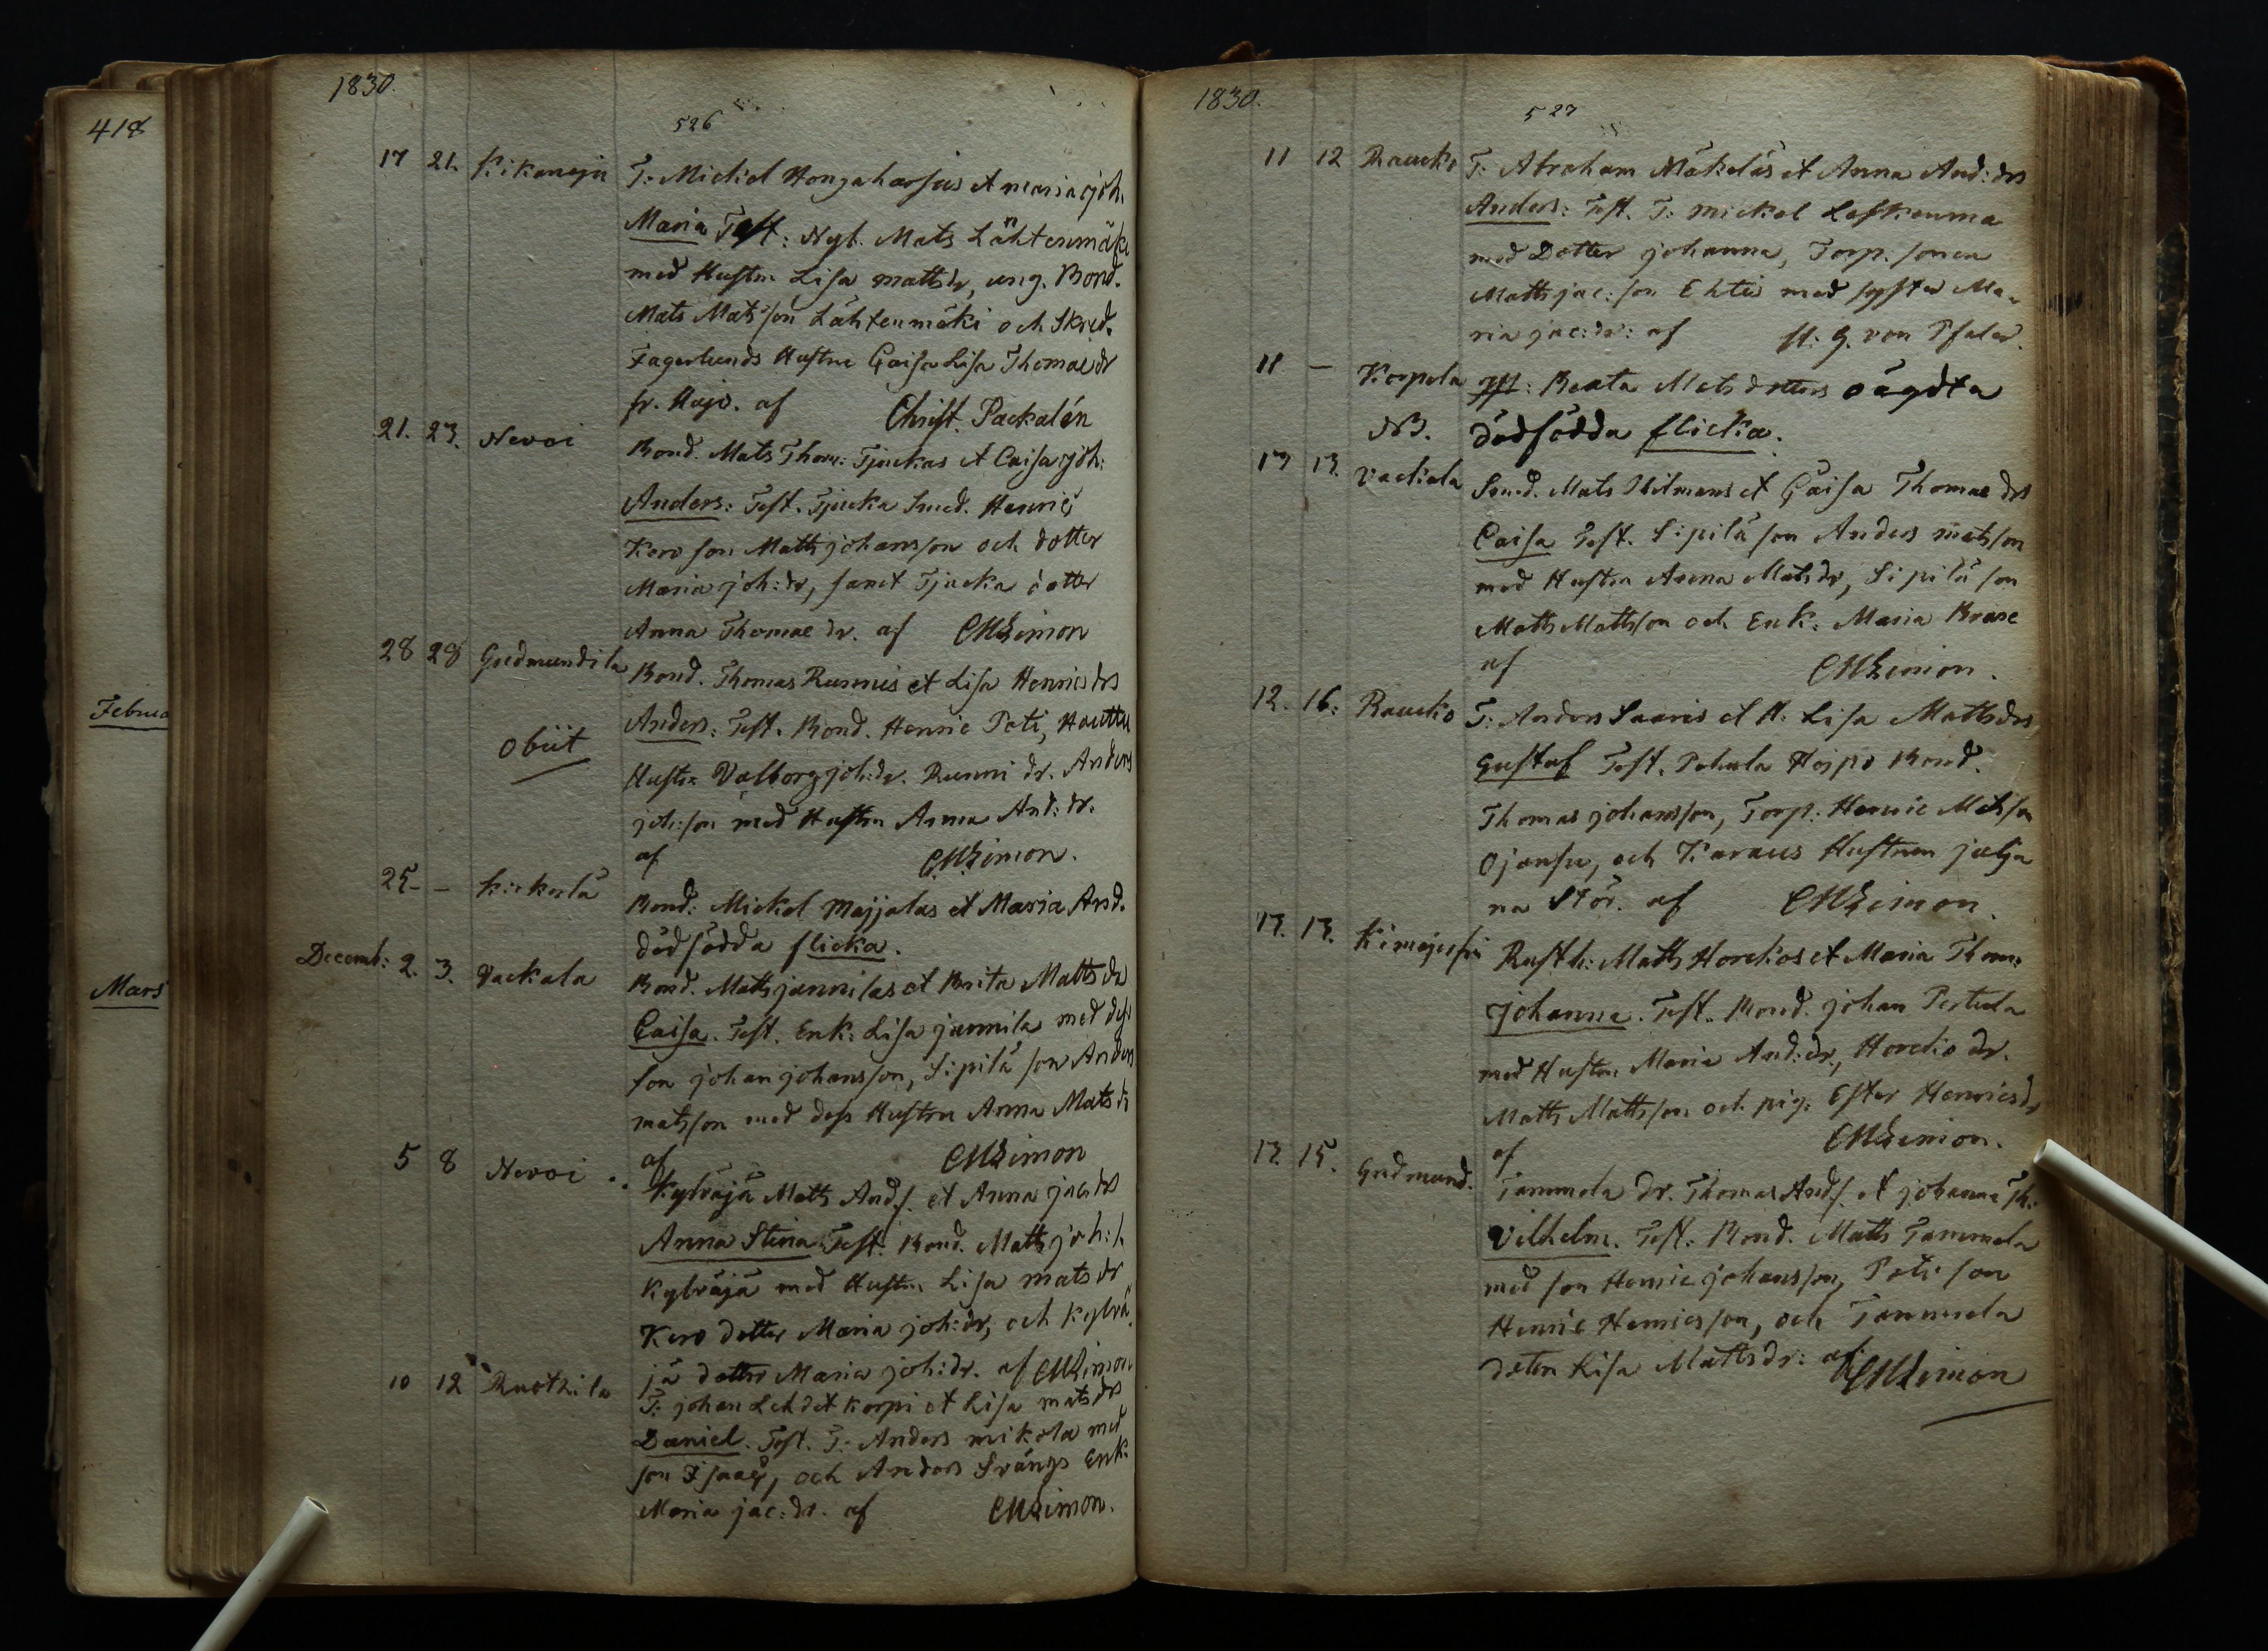 418
Februa
Mars
1830.
526
17 21. Kikanoja T: Mickel Hongaharjus et Maria Joh:
Maria Test: Nyb. Mats Lähtenmäki
med Hustru Lisa Mattsdr, ung. Bond.
Mats Matsson Lähtenmäki och Skred.
Fagerlunds Hustru Caisa Lisa Thomaedr
fr. af Christ. Packalén
21. 23. Nevoi Bond. Mats Thom: Tjuckas et Caisa Joh:
Anders: Test. Tjucka Smed. Henric
Kero son Matts Johansson och dotter
Maria Joh:dr, samt Tjucka dotter
Anna Thomae dr. af CMLimon
28 28 Gudmundila Bond. Thomas Runnis et Lisa Henricsdrs
Anders: Test. Bond. Henric Poti, Hauttu
obiit Hustru Valborg Joh:dr. Runni dr. Anders
Joh:son med Hustru Anna And:dr.
af CMLimon.
25 – Kierkerlä Bond: Mickel Majjalas et Maria And.
dödfödda flicka.
Decemb: 2. 3. Vackala Bond. Matts Jannilas et Brita Mattsdr
Caisa. Test. Enk: Lisa Jannila med dess
son Johan Johansson, Sipilä son Anders
Matsson med dess Hustru Anna Matsdr
af CMLimon
5 8 Nevoi .. Kylväjä Matts Ands. et Anna Jacdrs
Anna Stina Test: Bond. Matts Joh:s
Kylväjä med Hustru Lisa Matsdr
Kero dotter Maria Joh:dr, och Kylvä
jä dotter Maria Joh:dr. af CMLimon
10 12 Ruothila T: Johan Lehdet Korpi et Lisa Matsdrs
Daniel. Test. T: Anders Mikola med
son Isaac, och Anders Svängs Enk:
Maria Jac:dr. af CMLimon.
1830.
527
11 12 Raucko T: Abraham Mäkeläs et Anna And:drs
Anders: Test. T: Mickel Leskenma
med Dotter Johanna, Torp. sonen
Matts Jac:son Ehtis med syster Ma-
ria Jac:dr: af H: G. von Pfaler.
11 – Korpela : Beata Mats dotters oägdta
NB. dödfödda flicka.
13. Vackala Smed. Mats Hilmans et Caisa Thomae drs
Caisa Test. Sipilä son Anders Matsson
med Hustru Anna Matsdr, Sipilä son
Matts Mattsson och Enk: Maria Brase
af CMLimon.
12. 16. Raucko T: Anders Saaris et H: Lisa Mattsdrs
Gustaf Test. Pohula Hojpo Bond.
Thomas Johansson, Torp: Henric Matsson
Ojansu, och Karaus Hustrun Julja
na Stör. af CMLimon.
13. 13. Rusth: Matts Horckos et Maria Thom:
Johanna. Test. Bond. Johan Pertula
med Hustru Maria And:dr, Horcko dr.
Matts Mattsson och pig. Ester Henricsdr
af CMLimon.
13. 15. Gudmund. Tammela dr. Thomas Ands. et Johanna Th:
Vilhelm. Test. Bond. Matts Tammela
med son Henric Johansson, Poti son
Henric Henricsson, och Tammela
doter Lisa Mattsdr: af CMLimon